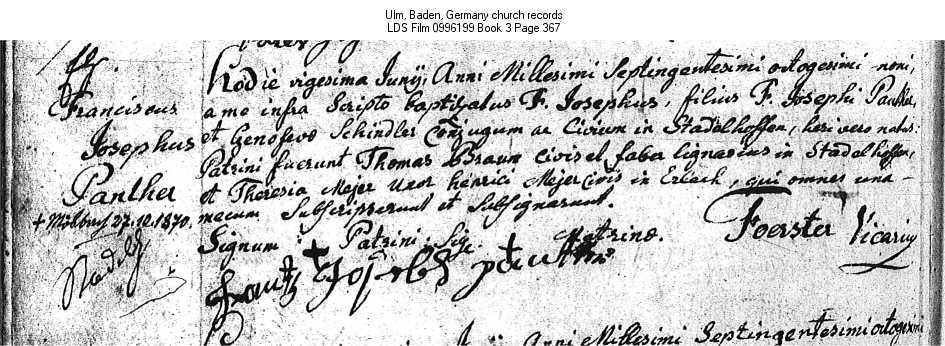 Ulm, Baden, Germany church records
LDS Film 0996199 Book 3 Page 367
Franciscus
Josephus
Panther
+ 27.10.1870.
Hodie vigesima Junij, Anni Millesimi Septingentesimi octogesimi noni,
a me infra Scripto baptizatus F. Josephus, filius F. Josephi Panther,
et Genofevæ Schindler Conjugum ac Civium in Stadelhoffen, heri vero natus.
Patrini fuerunt Thomas Braum civis et faber lignarius in Stadelhoffen,
et Theresia Mejer Uxor henrici Mejer civis in Erlach, qui omnes una-
mecum Subscripserunt et Subsignarunt.
Signum + Patrini. Sig. + Matrinæ.
Foerster Vicarius
Frantz Joseph panther
Anni Millesimi Septingentesimi octogesimi